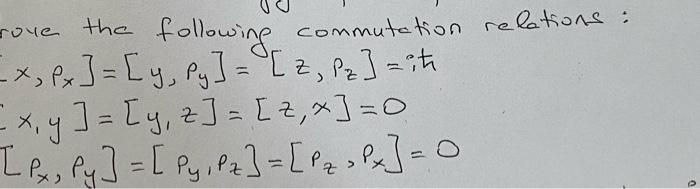 rove the following commutation relations :
x, Px] = [y, Py] = [z, Pz] = iħ
x, y] = [y, z] = [z, x] = 0
[Px, Py] = [Py, Pz] = [Pz, Px] = 0